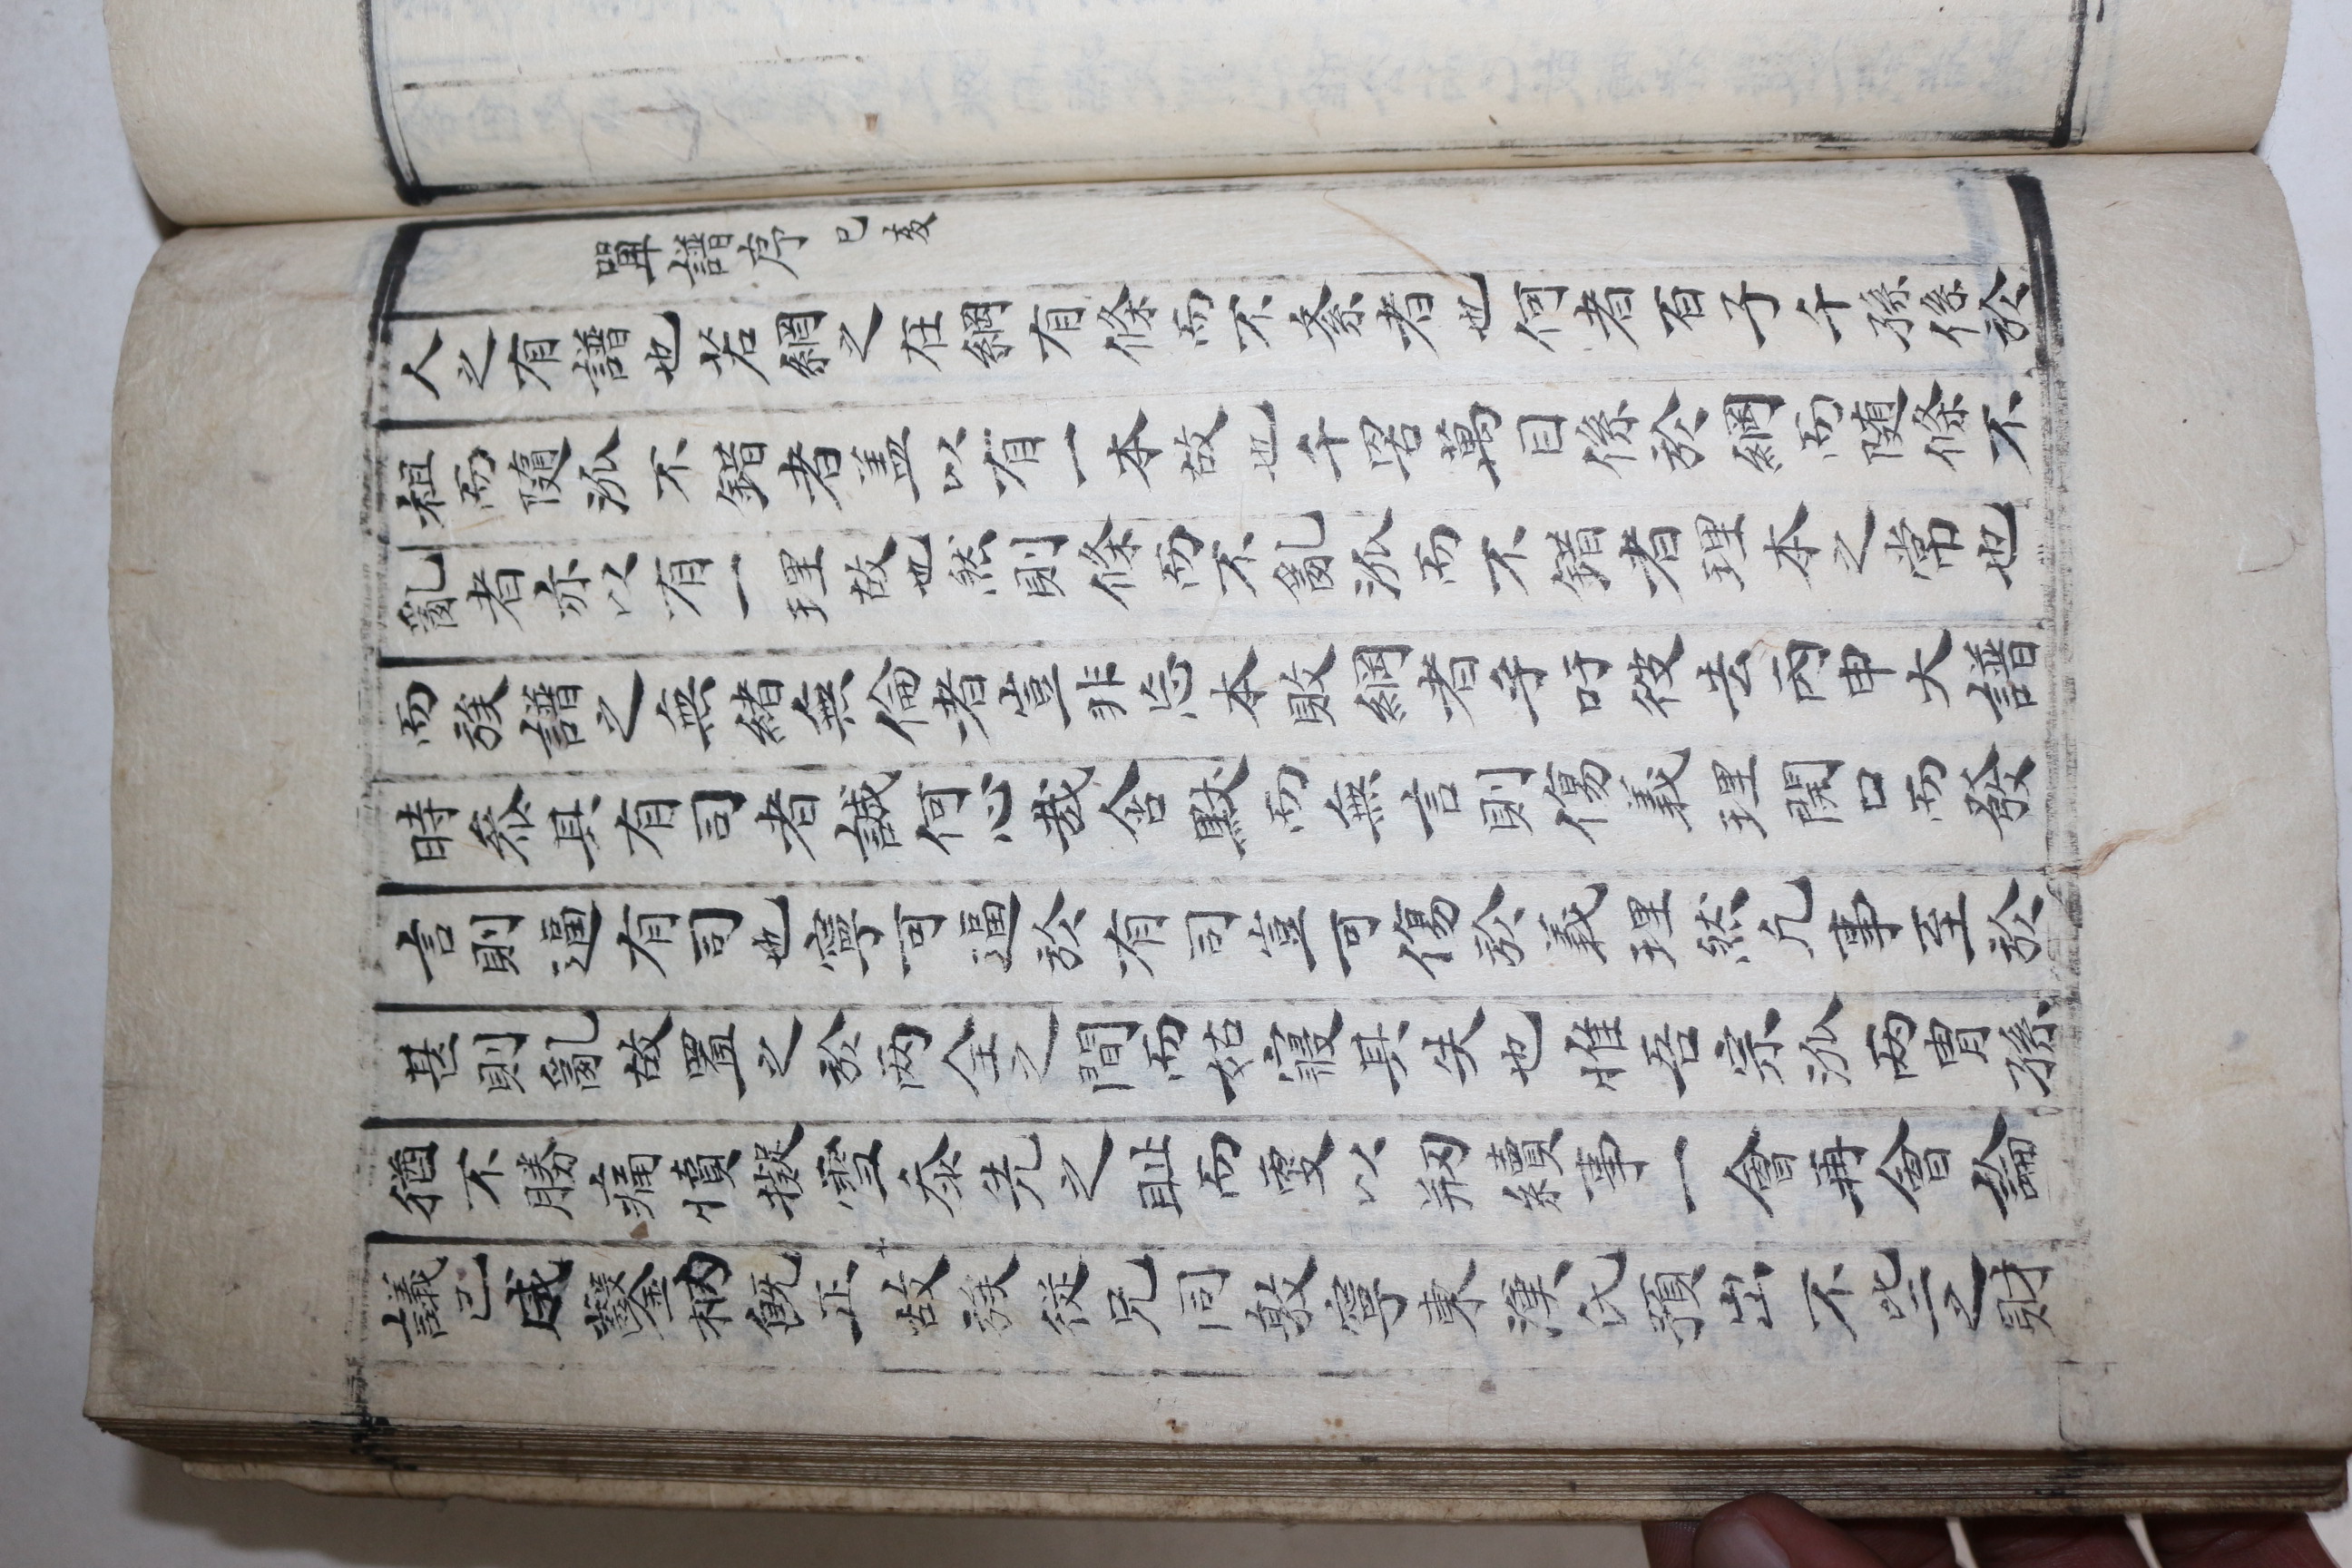 單譜序 己亥
人之有譜也若網之在綱有條而不紊者也何者百子千孫係於
祖而隨派不錯者盖以有一本故也千畧萬目係於綱而随條不
亂者亦以有一理故也然則條而不亂派而不錯者理本之常也
而族譜之無緖無倫者豈非忘本敗綱者乎吁彼去丙申大譜
時叅具有司者誠何心哉含默而無言則傷義理開口而發
言則逼有司也寧可逼於有司豈可傷於義理然凡事至於
甚則亂故置之於两全之間而姑寢其失也惟吾宗派两胄孫
猶不勝痛憤擬雪忝先之耻而雯以刱續事一會再會論
議已成鑿枘旣正故族從兄同敦寧東漢氏預出不些之財